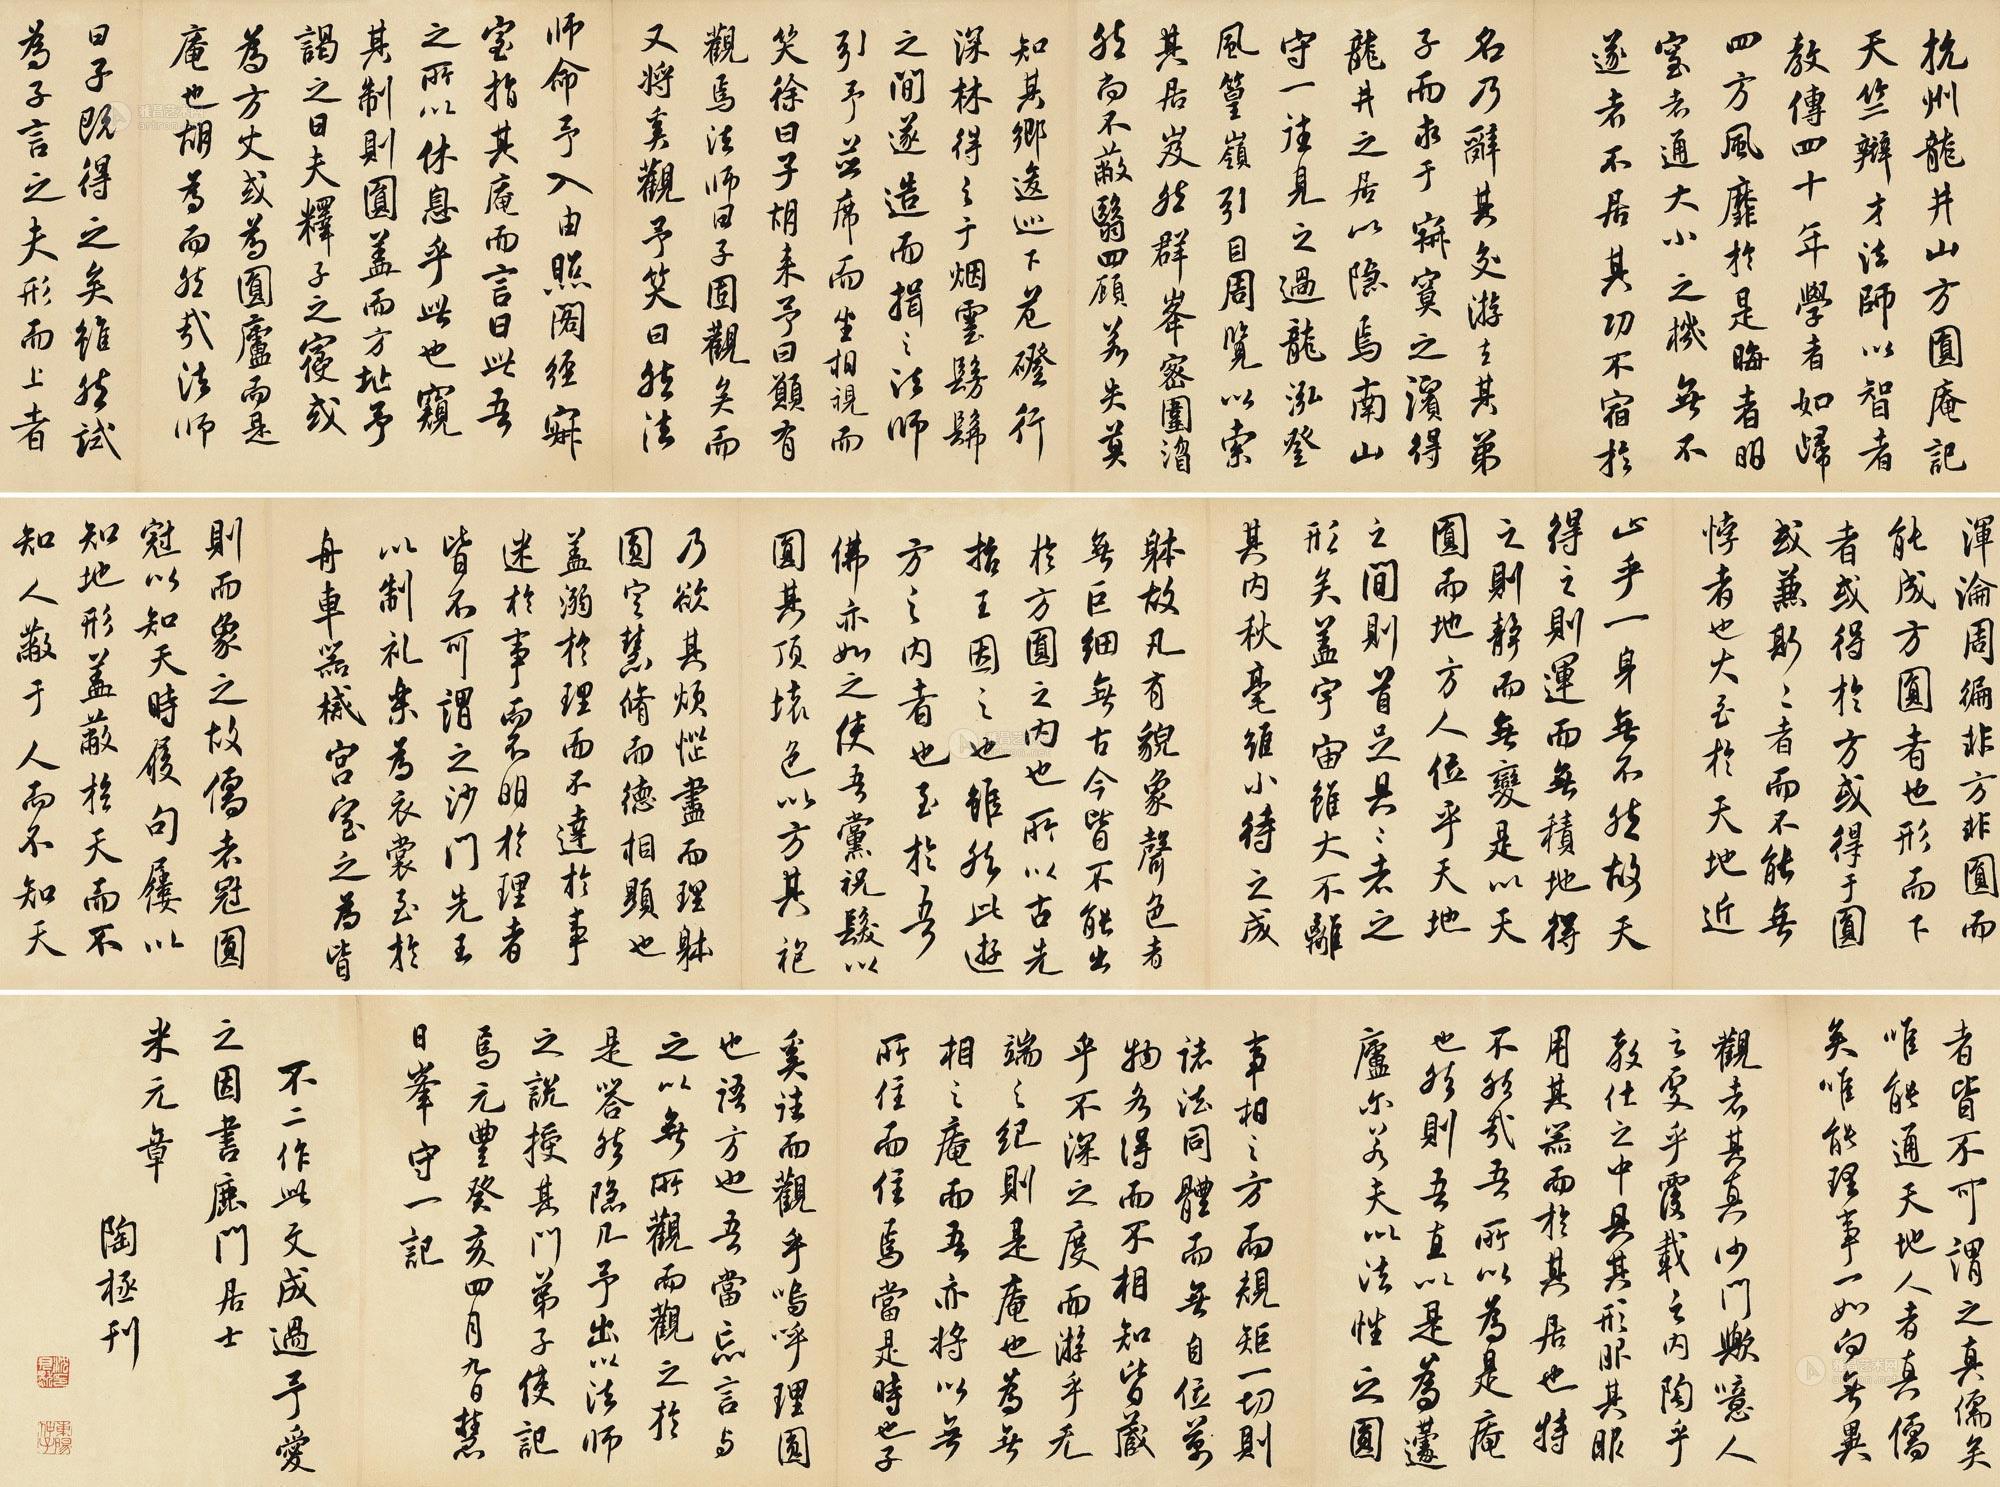 杭州龍井山方圓庵記
天竺辯才法師以智者
教傳四十年學者如歸
四方風靡於是晦者明
窒者通大小之機無不
遂者不居其功不宿於
名乃辭其交游去其弟
子而求于寂寞之濱得
龍井之居以隱焉南山
守一往見之過龍泓登
風篁嶺引目周覽以索
其居岌然群峯密圍溜
然尚不蔽翳四顧若失莫
知其鄉逡巡下危磴行
深林得之于烟雲髣髴
之間遂造而揖之法師
引予並席而坐相視而
笑徐曰子胡来予曰願有
觀焉法師曰子固觀矣而
又將奚觀予笑曰然法
師命予入由照閣經寂
室指其庵而言曰此吾
之所以休息乎此也窺
其制則圓蓋而方址予
謁之曰夫釋子之寢或
為方丈或為圓廬而是
庵也胡為而然哉法師
曰子既得之矣雖然試
為子言之夫形而上者
渾淪周徧非方非圓而
能成方圓者也形而下
者或得於方或得于圓
或兼斯二者而不能無
悖者也大至於天地近
止乎一身無不然故天
得之則運而無積地得
之則靜而無變是以天
圓而地方人位乎天地
之間則首足具二者之
形矣蓋宇宙雖大不離
其內秋毫雖小待之成
躰故凡有貌象聲色者
無巨細無古今皆不能出
於方圓之内也所以古先
哲王因之也雖然此游
方之内者也至於吾
佛亦如之使吾黨祝髮以
圓其頂壞色以方其袍
乃欲其煩惱盡而理躰
圓定慧脩而德相顯也
蓋溺於理而不達於事
迷於事而不明於理者
皆不可謂之沙門先王
以制礼樂為衣裳至於
舟車器械宮室之為皆
則而象之故儒者冠圓
冠以知天時履句屨以
知地形蓋蔽於天而不
知人蔽于人而不知天
者皆不可謂之真儒矣
唯能通天地人者真儒
矣唯能理事一如向無異
觀者其真沙門歟噫人
之處乎覆載之内陶乎
教化之中具其形服其服
用其器而於其居也特
不然哉吾所以為是庵
也然則吾直以是為蘧
廬尔若夫以法性之圓
事相之方而規矩一切則
諸法同體而無自位萬
物各得而不相知皆藏
乎不深之度而游乎无
端之紀則是庵也為無
相之庵而吾亦將以無
所住而住焉當是時也子
奚往而觀乎嗚呼理圓
也語方也吾當忘言与
之以無所觀而觀之於
是嗒然隱几予出以法師
之說授其門弟子使記
焉元豐癸亥四月九日慧
日峯守一記
不二作此文成過予愛
之因書鹿門居士
米元章
陶拯刊